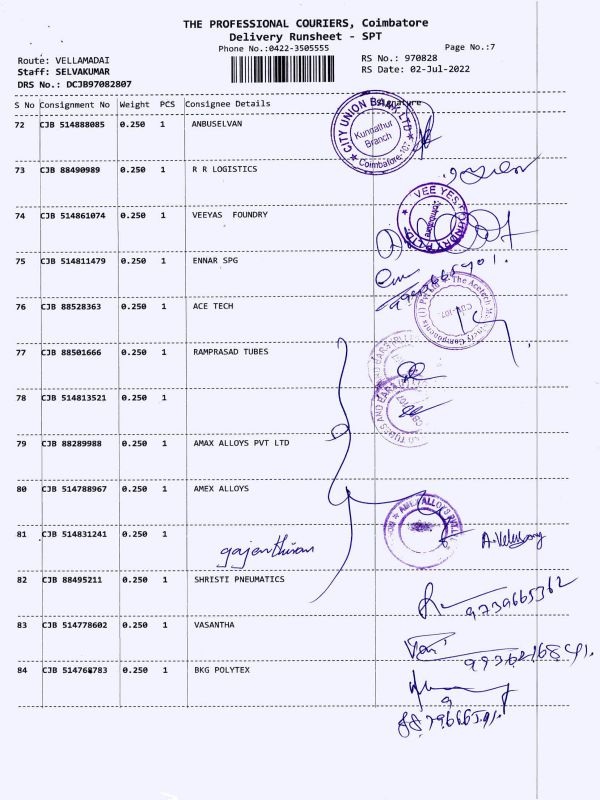 THE PROFESSIONAL COURIERS, Coimbatore
Delivery Runsheet - SPT
Phone No.:0422-3505555
Page No.:7
Route: VELLAMADAI
RS No.: 970828
Staff: SELVAKUMAR
RS Date: 02-Jul-2022
DRS No.: DCJB97082807
S No Consignment No Weight PCS Consignee Details Signature
72 CJB 514888085 0.250 1 ANBUSELVAN
CITY UNION BANK LTD
Kunnathur
Branch
Coimbatore-107
73 CJB 88490989 0.250 1 R R LOGISTICS
VEE YES FOUNDRY P LTD
Coimbatore
74 CJB 514861074 0.250 1 VEEYAS FOUNDRY
75 CJB 514811479 0.250 1 ENNAR SPG
76 CJB 88528363 0.250 1 ACE TECH
77 CJB 88501666 0.250 1 RAMPRASAD TUBES
78 CJB 514813521 0.250 1
79 CJB 88289988 0.250 1 AMAX ALLOYS PVT LTD
80 CJB 514788967 0.250 1 AMEX ALLOYS
81 CJB 514831241 0.250 1
gajenthiran
82 CJB 88495211 0.250 1 SHRISTI PNEUMATICS
9739665362
83 CJB 514778602 0.250 1 VASANTHA
84 CJB 514768783 0.250 1 BKG POLYTEX